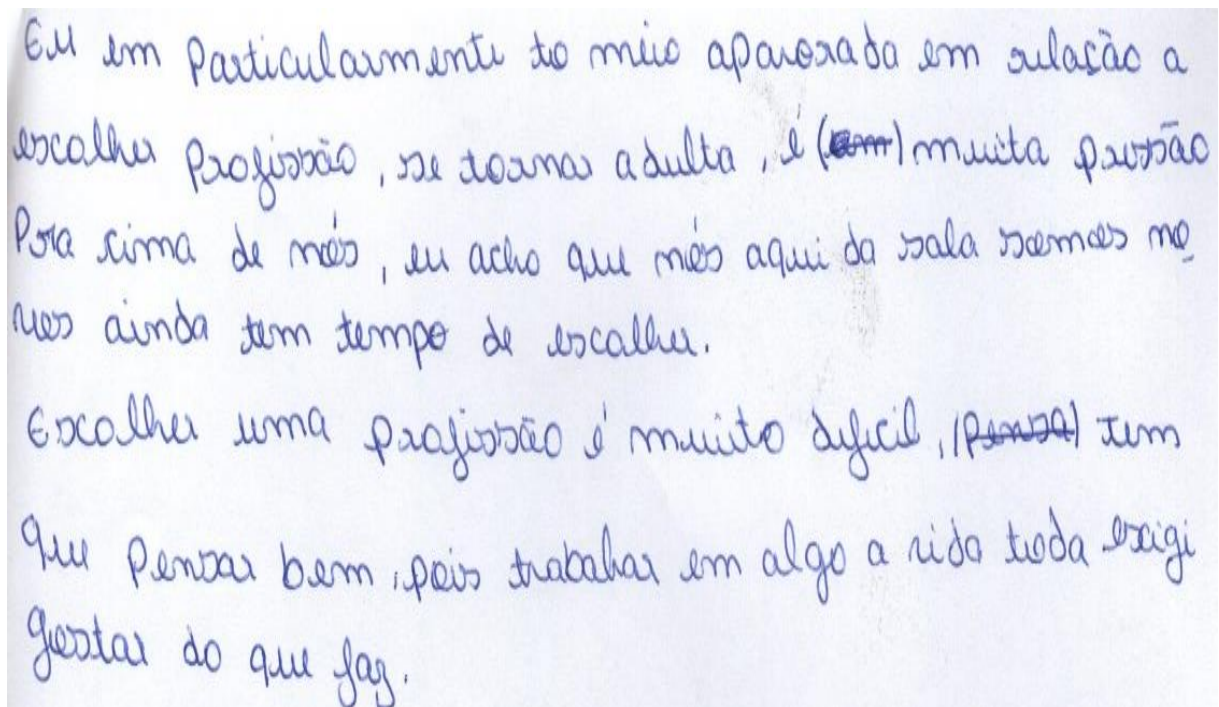 Eu em Particularmente to meio apavorada em relação a
escolher Profissão, se tornar adulta, é (em) muita pressão
Pra cima de nós, eu acho que nós aqui da sala somos no
vos ainda tem tempo de escolher.
Escolher uma profissão é muito dificil, (pensa) tem
que Pensar bem, pois trabalhar em algo a vida toda exigi
gostar do que faz.